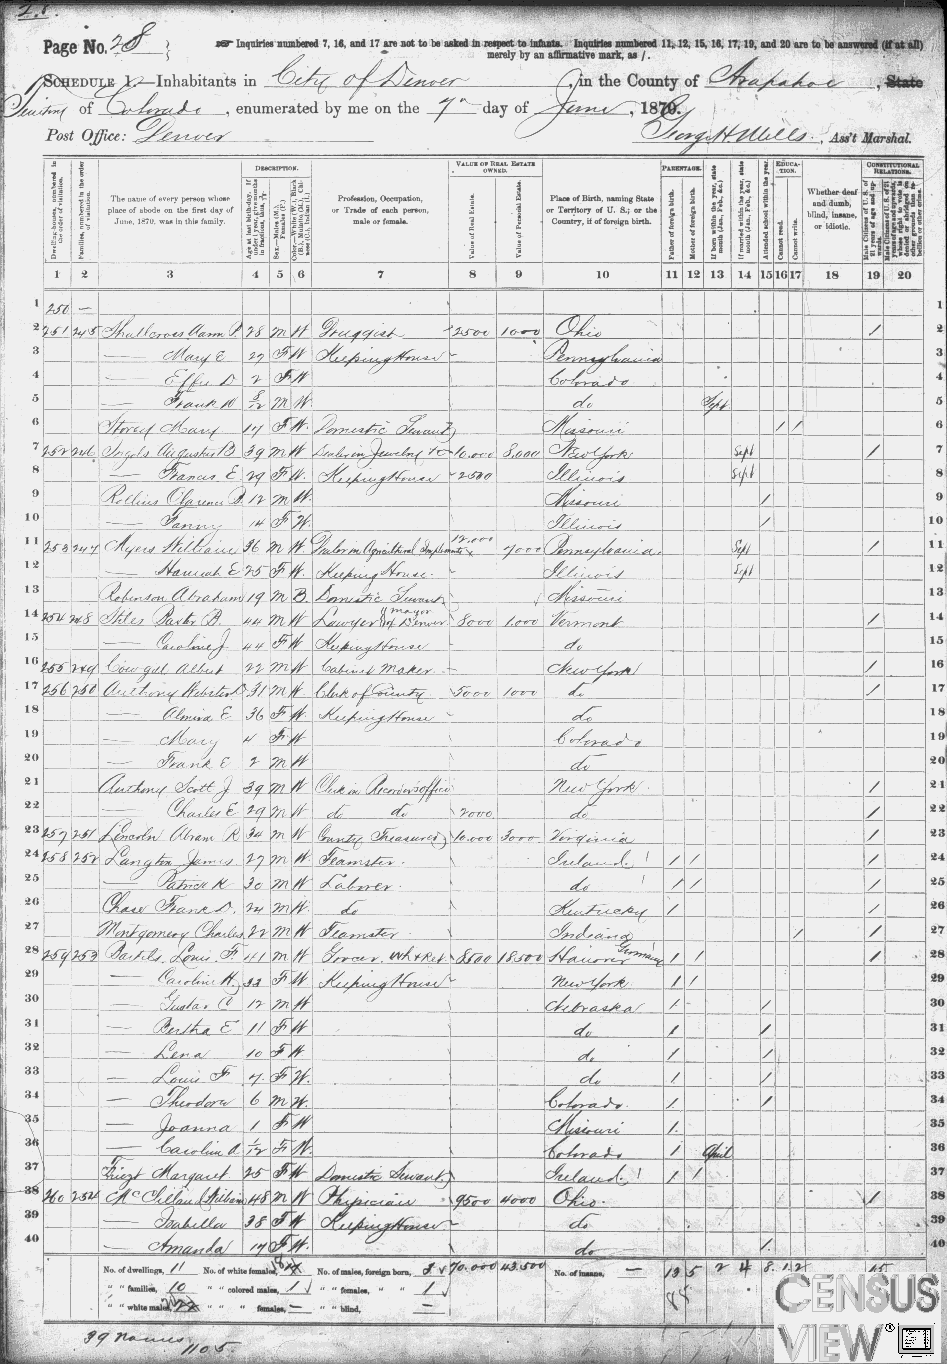 28
Page No. 28
Inquiries numbered 7, 16, and 17 are not to be asked in respect to infants. Inquiries numbered 11, 12, 15, 16, 17, 19, and 20 are to be answered (if at all)
merely by an affirmative mark, as /.
Schedule 1.—Inhabitants in City of Denver, in the County of Arapahoe, State
of Colorado, enumerated by me on the 7th day of June, 1870.
Post Office: Denver George H Mills, Ass't Marshal.
Dwelling-houses, numbered in the order of visitation.
Families, numbered in the order of visitation.
The name of every person whose place of abode on the first day of June, 1870, was in this family.
DESCRIPTION.
Age at last birth-day. If under 1 year, give months in fractions, thus, 3/12
Sex.—Males (M.), Females (F.)
Color.—White (W.), Black (B.), Mulatto (M.), Chinese (C.), Indian (I.)
Profession, Occupation, or Trade of each person, male or female.
VALUE OF REAL ESTATE OWNED.
Value of Real Estate.
Value of Personal Estate.
Place of Birth, naming State or Territory of U. S.; or the Country, if of foreign birth.
PARENTAGE.
Father of foreign birth.
Mother of foreign birth.
If born within the year, state month (Jan., Feb., &c.)
If married within the year, state month (Jan., Feb., &c.)
Attended school within the year.
EDUCATION.
Cannot read.
Cannot write.
Whether deaf and dumb, blind, insane, or idiotic.
CONSTITUTIONAL RELATIONS.
Male Citizens of U. S. of 21 years of age and upwards.
1 2 3 4 5 6 7 8 9 10 11 12 13 14 15 16 17 18 19 20
1 250 — 1
2 251 245 Aaron P. 28 M W Druggist 2500 1000 Ohio / 2
3 — Mary E 27 F W Keeping House Pennsylvania 3
4 — Effie D 2 F W Colorado 4
5 — Frank W 8/12 M W do Sept 5
6 Storey Mary 17 F W Domestic Servant Missouri / / 6
7 252 246 Ingols Augustus B 39 M W Dealer in Jewelry 10.000 8,000 New York Sept / 7
8 — Frances E 29 F W Keeping House 2500 Illinois Sept 8
9 Rollins Clarence D. 12 M W Missouri / 9
10 — Fanny 14 F W. Illinois / 10
11 253 247 Myers William 36 M W Dealer in Agricultural Implements 12.000 7000 Pennsylvania Sept / 11
12 — Hannah E 25 F W Keeping House Illinois Sept 12
13 Robinson Abraham 19 M B. Domestic Servant Missouri 13
14 254 248 Stiles Baxter B. 44 M W Lawyer "mayor of Denver 8000 1.000 Vermont / 14
15 — Caroline J 44 F W Keeping House do 15
16 255 249 Cowgel Albert 22 M W Cabinet Maker New York / 16
17 256 250 Anthony Webster D 31 M W Clerk of County 5000 1000 do / 17
18 — Almira E 36 F W Keeping House do 18
19 — Mary 4 F W Colorado 19
20 — Frank E 2 M W do 20
21 Anthony Scott J 39 M W Clerk in Recorders office New York / 21
22 — Charles E 29 M W do do 2000 do / 22
23 257 251 Lincoln Abram R 34 M W County Treasurer 10.000 3000 Virginia / 23
24 258 252 Langton James 27 M W Teamster Ireland / / / 24
25 — Patrick K 30 M W Laborer do / / / 25
26 Chase Frank D. 24 M W do Kentucky / / 26
27 Montgomery Charles 22 M W Teamster Indiana / / 27
28 259 253 Bartels Louis F 41 M W Grocer, Wh & Ret 8500 18.500 Hanover Germany / / / 28
29 — Caroline H. 33 F W Keeping House New York / / 29
30 — Gustav C 12 M W Nebraska / / 30
31 — Bertha E 11 F W do / / 31
32 — Lena 10 F W do / / 32
33 — Louis F 7 F W. do / / 33
34 — Theodore 6 M W. Colorado / / 34
35 — Joanna 1 F W Missouri / 35
36 — Caroline A 1/12 F W. Colorado / April 36
37 Margaret 25 F W Domestic Servant Ireland / / 37
38 260 254 McClelland William 48 M W Physician 9500 4000 Ohio / 38
39 — Isabella 38 F W Keeping House do 39
40 — Amanda 17 F W. do / 40
No. of dwellings, 11 No. of white females, 18 No. of males, foreign born, 3 70.000 43.500 No. of insane, — 13 5 2 4 8 1 2 15
" " families, 10 " " colored males, 1 " " females, " 1
" " white males, " " " females, — " " blind, —
39 names
1105
CENSUS
VIEW